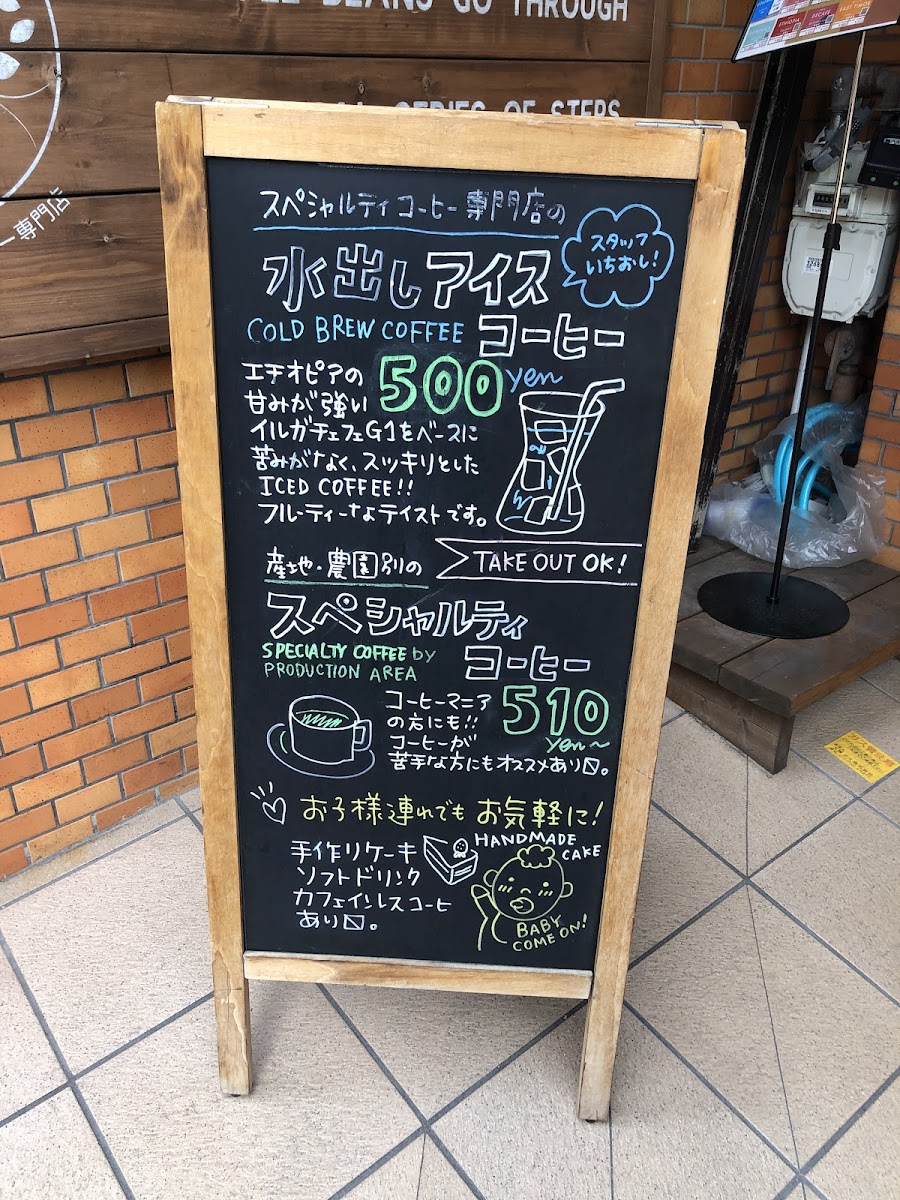 BEANS GO THROUGH
SERIES OF STEPS
専門店
ETHIOPIA
DECAFE
EAST TIMOR
スペシャルティコーヒー専門店の
スタッフ
いちおし!
水出しアイス
COLD BREW COFFEE コーヒー
エチオピアの 500yen
甘みが強い
イルガチェフェG1をベースに
苦みがなく、スッキリとした
ICED COFFEE!!
フルーティーなテイストです。
TAKE OUT OK!
産地・農園別の
スペシャルティ
SPECIALTY COFFEE by コーヒー
PRODUCTION AREA
コーヒーマニア 510
の方にも!! yen~
コーヒーが
苦手な方にもオススメあり〼。
お子様連れでも お気軽に!
HANDMADE
CAKE
手作りケーキ
ソフトドリンク
カフェインレスコーヒ
あり〼。
BABY
COME ON!